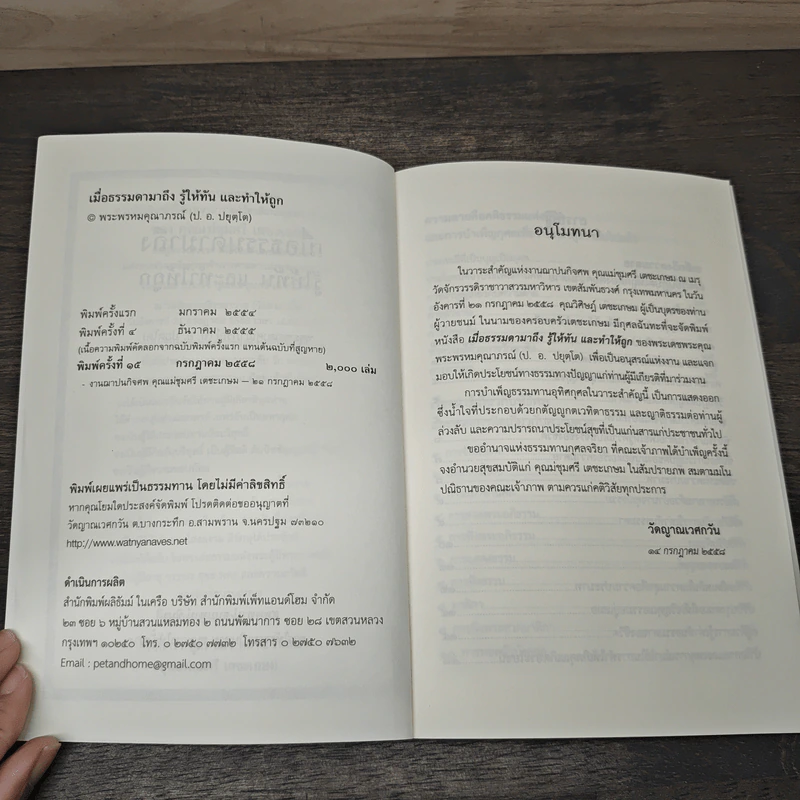 เมื่อธรรมดามาถึง รู้ให้ทัน และทำให้ถูก
© พระพรหมคุณาภรณ์ (ป. อ. ปยุตฺโต)
พิมพ์ครั้งแรก มกราคม ๒๕๕๔
พิมพ์ครั้งที่ ๔ ธันวาคม ๒๕๕๕
(เนื้อความพิมพ์คัดลอกจากฉบับพิมพ์ครั้งแรก แทนต้นฉบับที่สูญหาย)
พิมพ์ครั้งที่ ๑๕ กรกฎาคม ๒๕๕๘ ๒,๐๐๐ เล่ม
- งานฌาปนกิจศพ คุณแม่ชุมศรี เตชะเกษม — ๒๑ กรกฎาคม ๒๕๕๘
พิมพ์เผยแพร่เป็นธรรมทาน โดยไม่มีค่าลิขสิทธิ์
หากคุณโยมใดประสงค์จัดพิมพ์ โปรดติดต่อขออนุญาตที่
วัดญาณเวศกวัน ต.บางกระทึก อ.สามพราน จ.นครปฐม ๗๓๒๑๐
http://www.watnyanaves.net
ดำเนินการผลิต
สำนักพิมพ์ผลิธัมม์ ในเครือ บริษัท สำนักพิมพ์เพ็ทแอนด์โฮม จำกัด
๒๓ ซอย ๖ หมู่บ้านสวนแหลมทอง ๒ ถนนพัฒนาการ ซอย ๒๘ เขตสวนหลวง
กรุงเทพฯ ๑๐๒๕๐ โทร. ๐ ๒๗๕๐ ๗๗๓๒ โทรสาร ๐ ๒๗๕๐ ๗๖๓๒
Email : petandhome@gmail.com
อนุโมทนา
ในวาระสำคัญแห่งงานฌาปนกิจศพ คุณแม่ชุมศรี เตชะเกษม ณ เมรุ
วัดจักรวรรดิราชาวาสวรมหาวิหาร เขตสัมพันธวงศ์ กรุงเทพมหานคร ในวัน
อังคารที่ ๒๑ กรกฎาคม ๒๕๕๘ คุณวิศิษฎ์ เตชะเกษม ผู้เป็นบุตรของท่าน
ผู้วายชนม์ ในนามของครอบครัวเตชะเกษม มีกุศลฉันทะที่จะจัดพิมพ์
หนังสือ เมื่อธรรมดามาถึง รู้ให้ทัน และทำให้ถูก ของพระเดชพระคุณ
พระพรหมคุณาภรณ์ (ป. อ. ปยุตฺโต) เพื่อเป็นอนุสรณ์แห่งงาน และแจก
มอบให้เกิดประโยชน์ทางธรรมทางปัญญาแก่ท่านผู้มีเกียรติที่มาร่วมงาน
การบำเพ็ญธรรมทานอุทิศกุศลในวาระสำคัญนี้ เป็นการแสดงออก
ซึ่งน้ำใจที่ประกอบด้วยกตัญญูกตเวทิตาธรรม และญาติธรรมต่อท่านผู้
ล่วงลับ และความปรารถนาประโยชน์สุขที่เป็นแก่นสารแก่ประชาชนทั่วไป
ขออำนาจแห่งธรรมทานกุศลจริยา ที่คณะเจ้าภาพได้บำเพ็ญครั้งนี้
จงอำนวยสุขสมบัติแก่ คุณแม่ชุมศรี เตชะเกษม ในสัมปรายภพ สมตามมโน
ปณิธานของคณะเจ้าภาพ ตามควรแก่คติวิสัยทุกประการ
วัดญาณเวศกวัน
๑๔ กรกฎาคม ๒๕๕๘